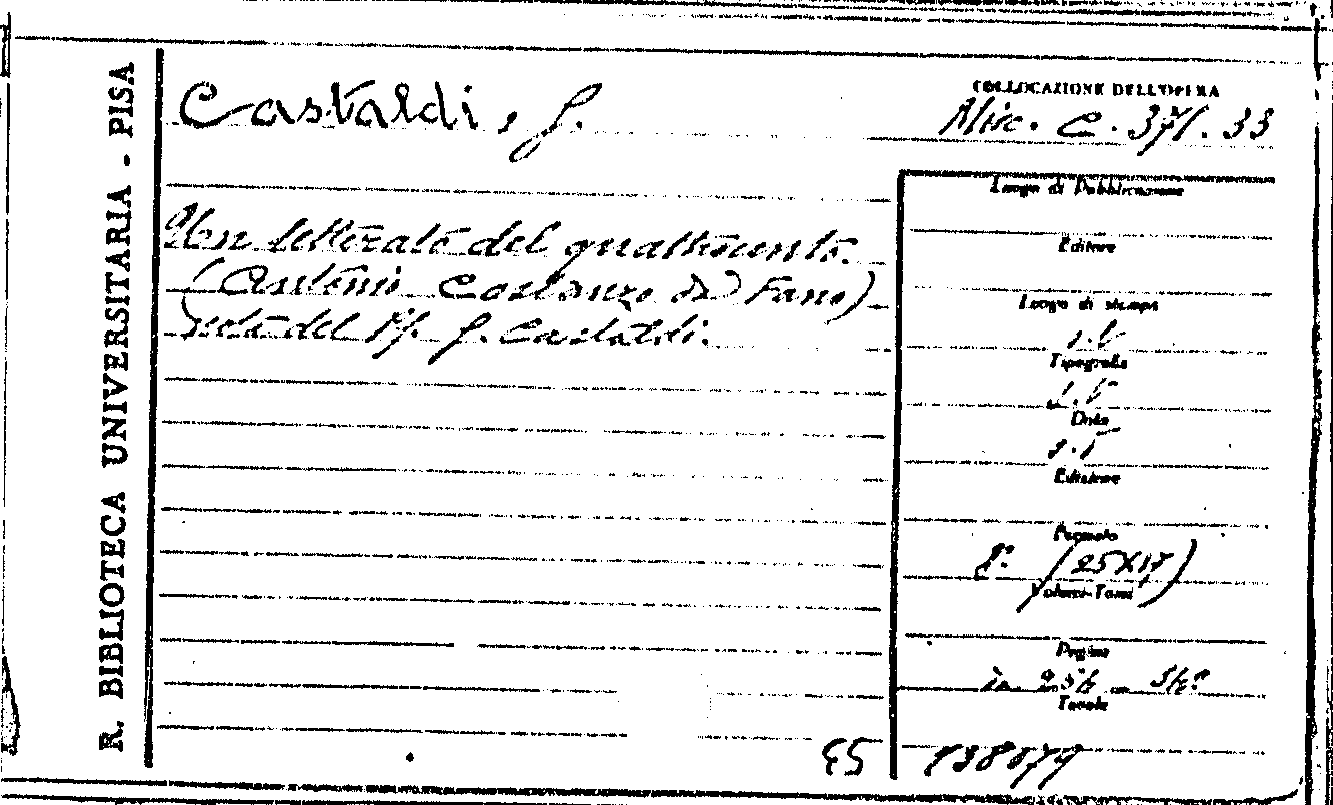 R. BIBLIOTECA UNIVERSITARIA - PISA
Castaldi, G.
COLLOCAZIONE DELL'OPERA
Misc. C. 371. 33
Un letterato del quattrocento.
(Antonio Costanzo da Fano)
nota del Pf. G. Castaldi.
Luogo di Pubblicazione
Editore
Luogo di stampa
s.l.
Tipografia
s.t.
Data
Edizione
Formato
8° (25X17)
Volumi-Tomi
Pagine
Tavole